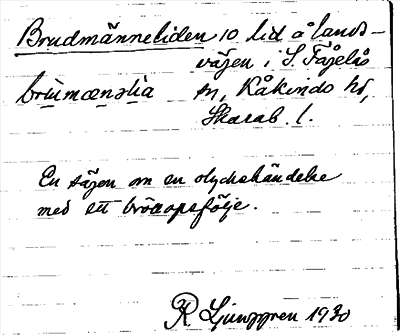 Brudmänneliden 10 lid å lands-
vägen i S. Fågelås
brùmænslìa sn, Kåkinds hd,
Skarab. l.
En sägen om en olyckshändelse
med ett bröllopsfölje.
R Ljunggren 1930